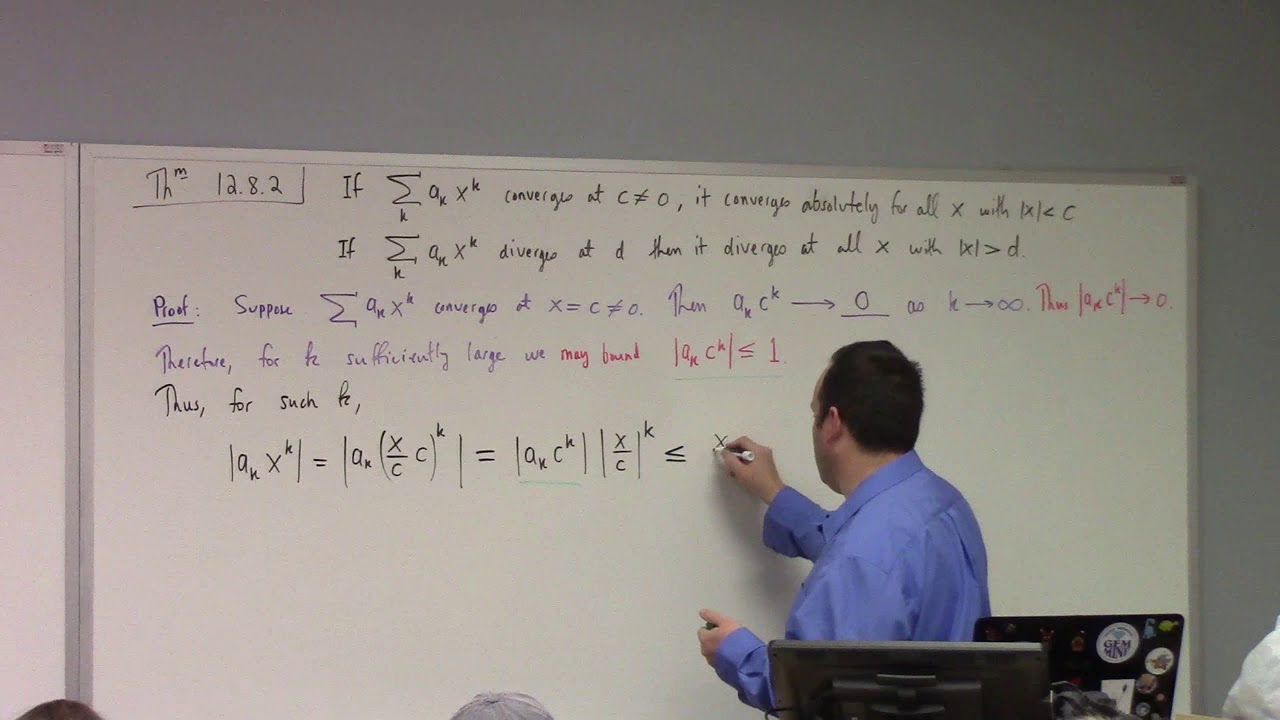 Thᵐ 12.8.2 If ∑ₖ aₖ xᵏ converges at c ≠ 0, it converges absolutely for all x with |x| < c
If ∑ₖ aₖ xᵏ diverges at d then it diverges at all x with |x| > d.
Proof: Suppose ∑ aₖ xᵏ converges at x = c ≠ 0. Then aₖ cᵏ → 0 as k → ∞. Thus |aₖ cᵏ| → 0.
Therefore, for k sufficiently large we may bound |aₖ cᵏ| ≤ 1.
Thus, for such k,
|aₖ xᵏ| = |aₖ (x/c c)ᵏ| = |aₖ cᵏ| |x/c|ᵏ ≤ x
GEM
MINI